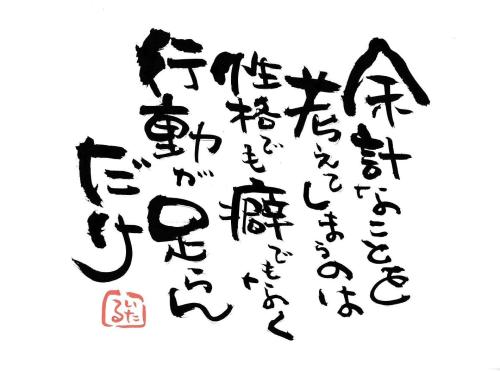 余計なことを
考えてしまうのは
性格でも癖でもなく
行動が足らん
だけ
いたる